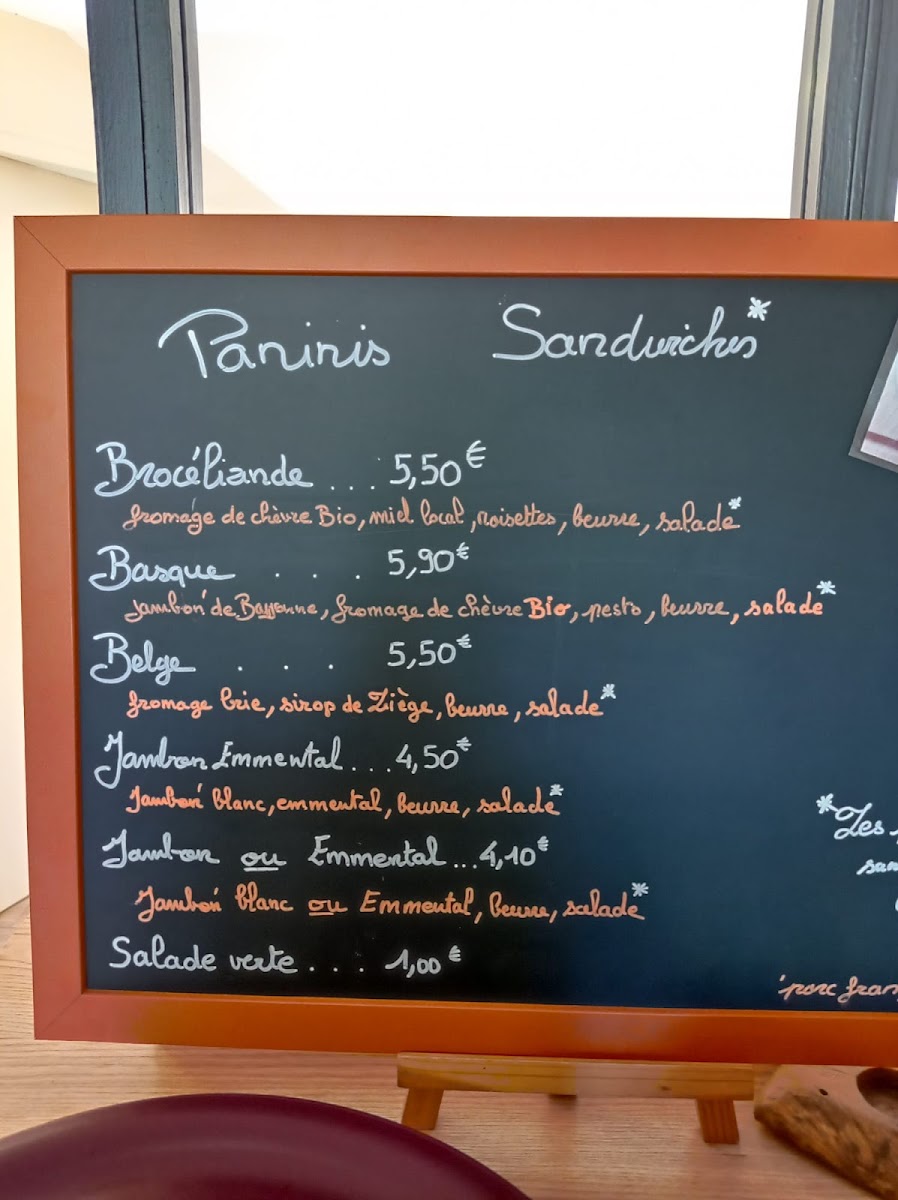 Paninis Sandwiches*
Brocéliande ... 5,50€
fromage de chèvre Bio, miel local, noisettes, beurre, salade*
Basque . . . 5,90€
jambon' de Bayonne, fromage de chèvre Bio, pesto, beurre, salade*
Belge . . . 5,50€
fromage brie, sirop de Liège, beurre, salade*
Jambon Emmental ... 4,50€
Jambon' blanc, emmental, beurre, salade*
Jambon ou Emmental ... 4,10€
Jambon' blanc ou Emmental, beurre, salade*
Salade verte ... 1,00€
*Les
san
'porc fran